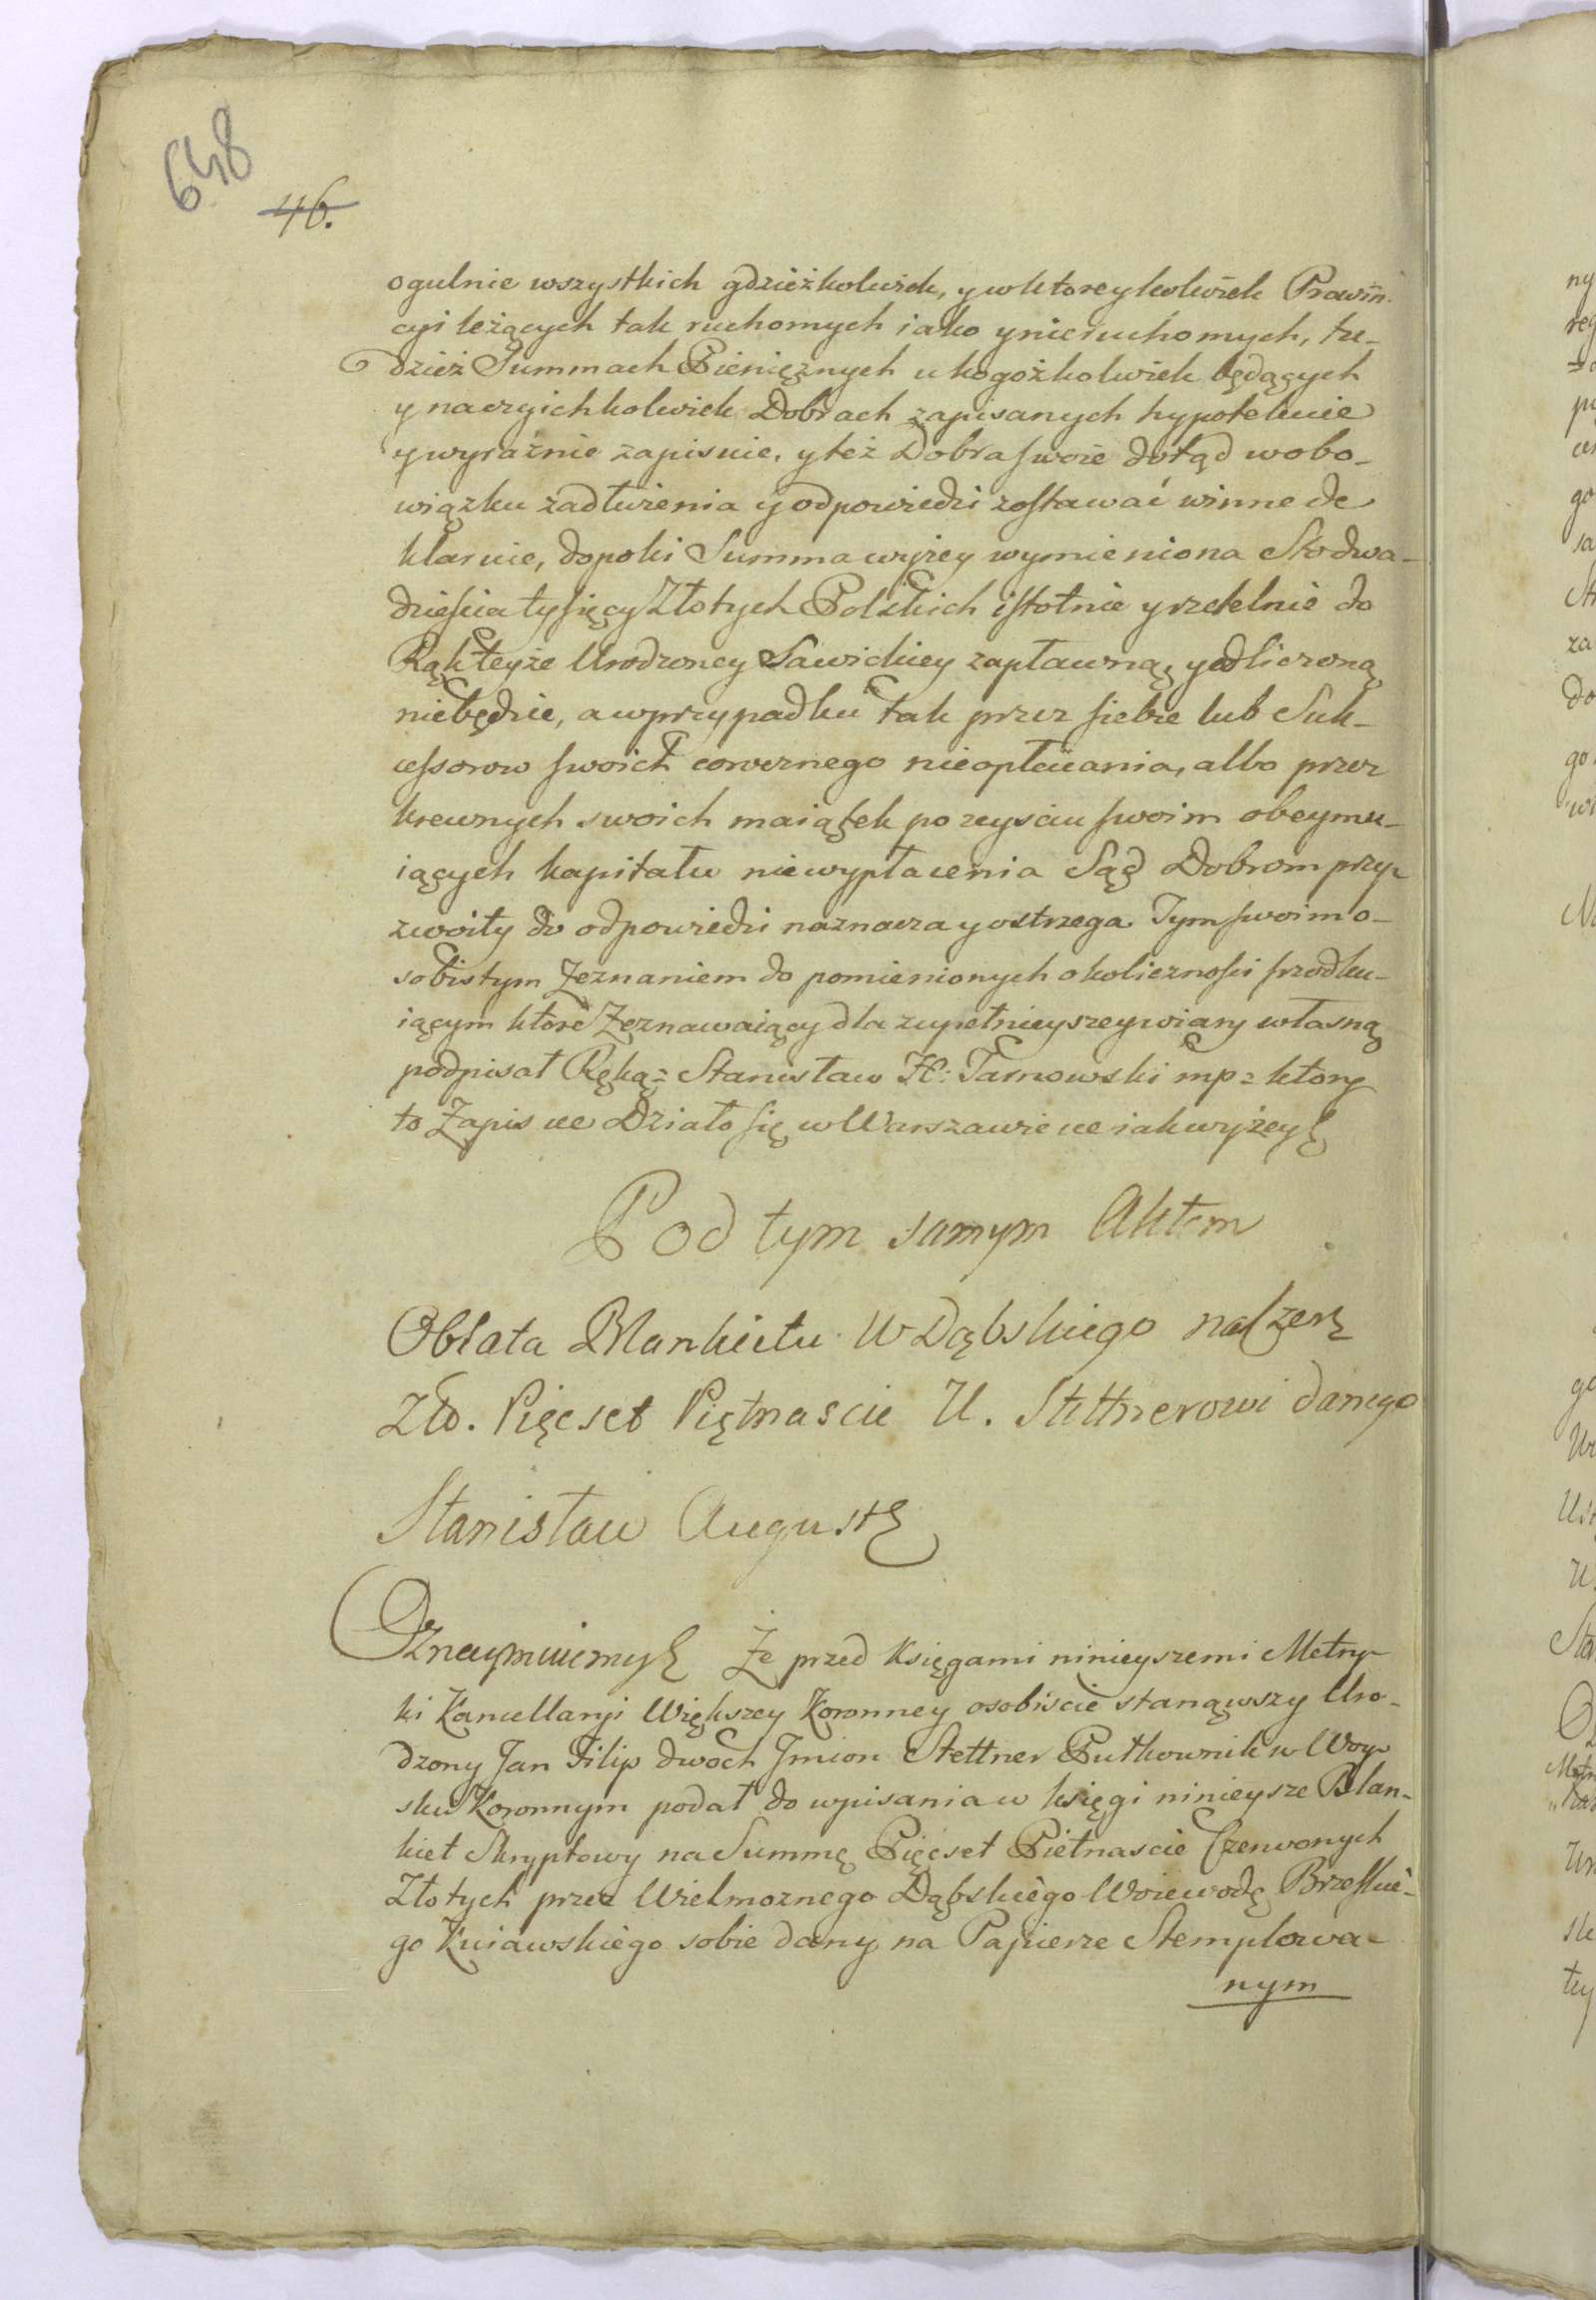 648
46.
ogulnie wszystkich gdzieżkolwiek, y wktoreykolwiek Prowin-
cyi leżących tak ruchomych iako y nieruchomych, tu-
dzież Summach Pieniężnych u kogożkolwiek będących
y naczyichkolwiek Dobrach zapisanych hypotekuie
y wyraźnie zapisuie, y też Dobra swoie dotąd wobo-
wiązku zadłużenia y odpowiedzi zostawać winne de
klaruie, dopoki Summa wyżey wymieniona Stodwa-
dziescia tysięcy Złotych Polskich istotnie y rzetelnie do
Rąk teyże Urodzoney Sawickiey zapłaconą y odliczoną
niebędzie, a wprzypadku tak przez siebie lub Suk-
cessorow swoich corocznego nieopłacania, albo przez
krewnych swoich maiątek po zeysciu swoim obeymu-
iących kapitału niewypłacenia Sąd Dobrom przy-
zwoity do odpowiedzi naznacza y ostrzega Tym swoim o-
sobistym Zeznaniem do pomienionych okolicznosci srzodku-
iącym ktore Zeznawaiący dla zupełnieyszey wiary własną
podpisał Ręką= Stanisław H: Tarnowski mp= ktory
to Zapis &c Działo się w Warszawie &c iak wyżey
Pod tym samym Aktem
Oblata Blankietu W Dąbskiego na Czer.
Zło. Pięcset Piętnascie U. Stettnerowi danego
Stanisław August
Oznaymuiemy Że przed Księgami ninieyszemi Metry-
ki Kancellaryi Większey Koronney osobiscie stanąwszy Uro-
dzony Jan Filip dwoch Jmion Stettner Pułkownik w Woy-
sku Koronnym podał do wpisania w księgi ninieysze Blan-
kiet Skryptowy na Summę Pięcset Pietnascie Czerwonych
Złotych przez Wielmoznego Dąbskiego Woiewodę Brzeskie-
go Kuiawskiego sobie dany na Papierze Stemplowa-
nym